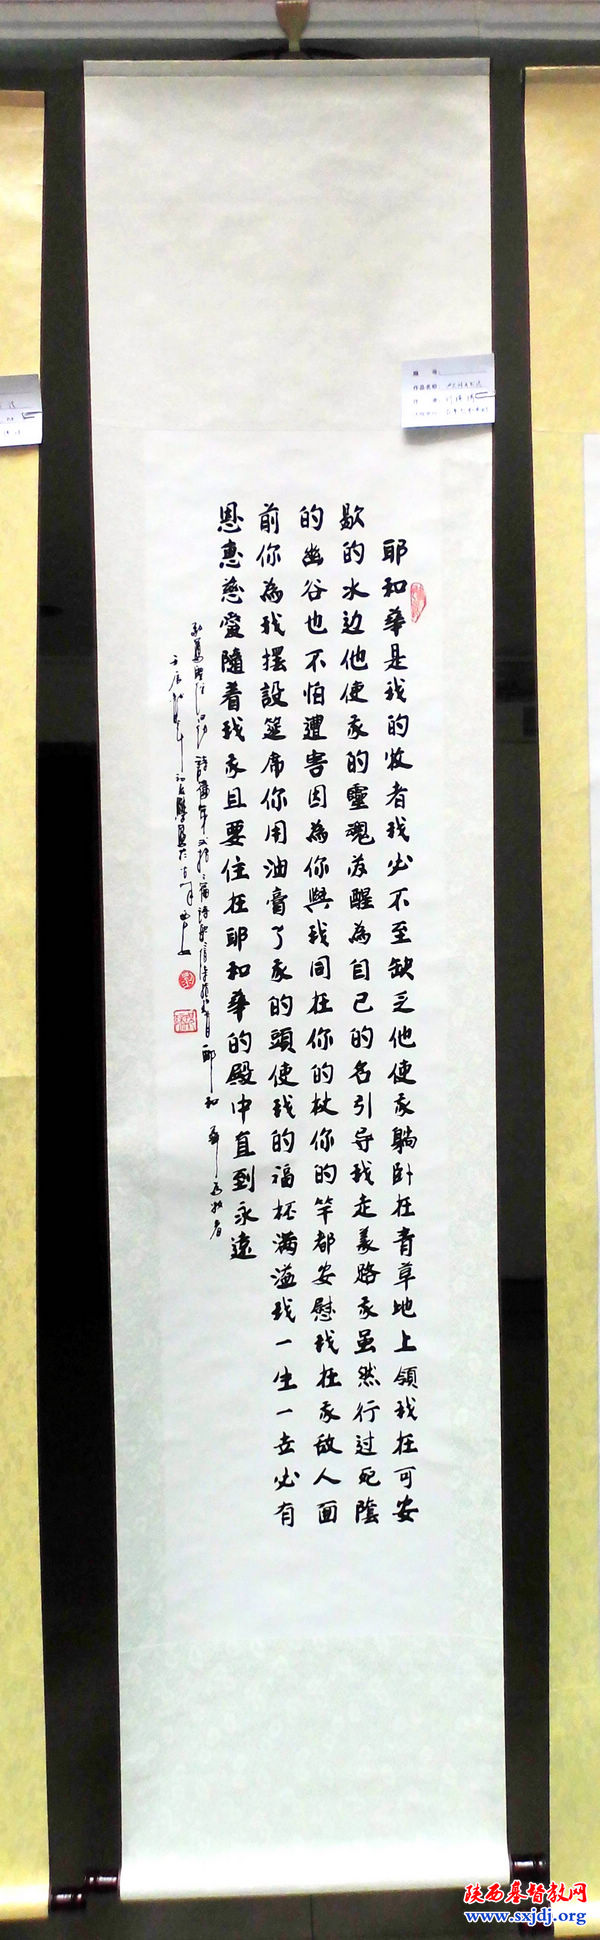 耶和華是我的牧者我必不至缺乏他使我躺卧在青草地上領我在可安
歇的水边他使我的靈魂甦醒為自己的名引导我走義路我虽然行过死陰
的幽谷也不怕遭害因為你與我同在你的杖你的竿都安慰我在我敌人面
前你為我擺設筵席你用油膏了我的頭使我的福杯满溢我一生一世必有
恩惠慈愛隨着我我且要住在耶和華的殿中直到永遠
編 号
作品名称
作 者
陕西基督教网
www.sxjdj.org